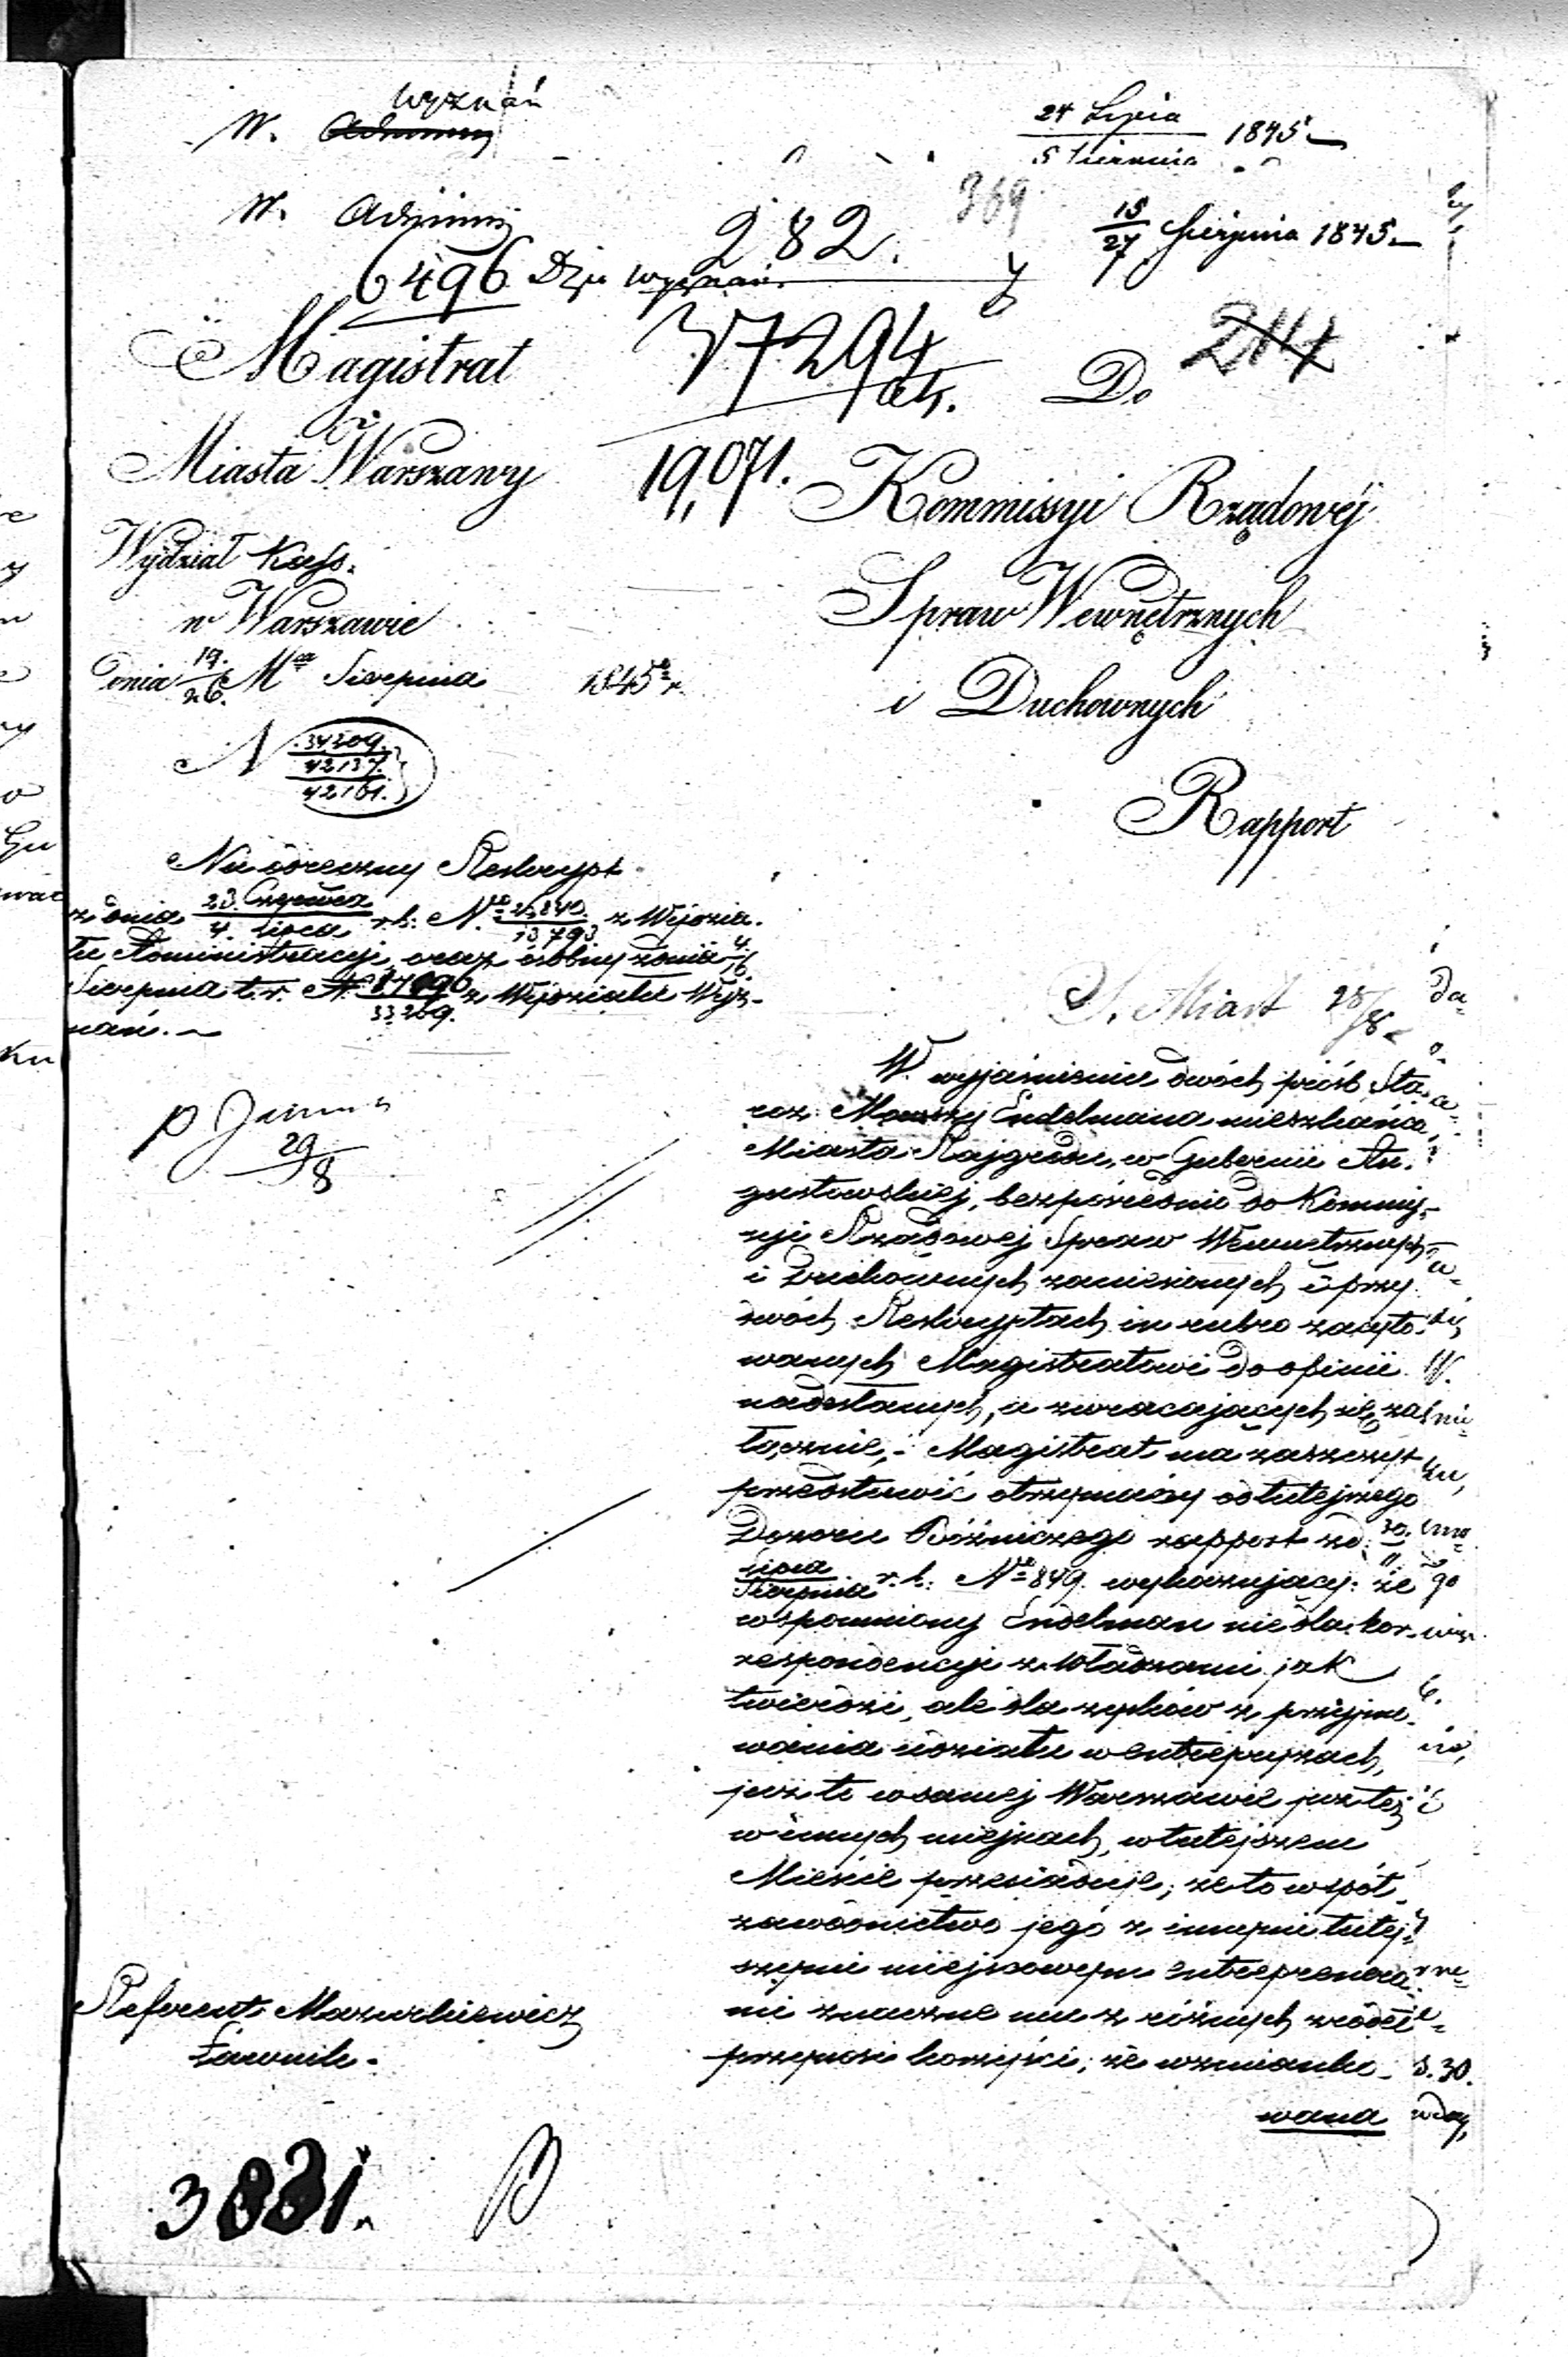 wyznań
W.
24 Lipca
5 Sierpnia 1845
W. Admini
282.
369
15
27 Sierpnia 1845
6496 Dzu wyznań
Magistrat
37294
Do
Miasta Warszawy
19,071.
Kommissyi Rządowéj
Wydział Kass.
Spraw Wewnętrznych
w Warszawie
Dnia 26. Mca Sierpnia 1845 r.
i Duchownych
N 34209.
42137.
42161.
Rapport
Na Reskrypt
z dnia 23. Czerwca
4. Lipca r. b. No z Wydzia-
łu Administracyi, oraz z dnia 4
16
Sierpnia t. r. N. z Wydziału Wyz-
33269.
nań.
S. Miast 28/8
W wyjaśnienie dwóch próśb Sta-
roz. Endelmana mieszkańca
Miasta Rajgrodu, w Gubernii Au-
gustowskiej, bezpośrednio do Kommis-
syi Rządowej Spraw Wewnetrznych
i Duchownych zaniesionych i przy
dwóch Reskryptach in rubro zacyto-
wanych Magistratowi do opinii
nadesłanych, a zwracających się za-
łącznie,- Magistrat ma zaszczyt
przedstawić otrzymany od tutejszego
Dozoru Bóżniczego rapport z d. 30. Lipca
11. Sierpnia r. b. No 849. wykazujący: że
wspomniony Endelman nie dla kor-
respondencyi z Władzami jak
twierdzi, ale dla zysków z przyjmo-
wania udziału w entrepryzach,
już to w samej Warszawie już też
w innych miejscach, w tutejszem
Mieście przesiaduje; że to współ-
zawodnictwo jego z innymi tutej-
szymi miejscowymi entreprenera-
mi znaczne mu z różnych źródeł
przynosi korzyści; że wzmianko-
wana
29
8
Referent Mazurkiewicz
Ławnik.
3831.